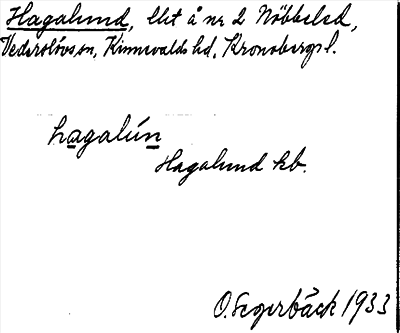 Hagalund, lht å nr 2 Nöbbeled,
Vederslövs sn, Kinnevalds hd, Kronobergs l.
hagalún
Hagalund kb.
O. Segerbäck 1933